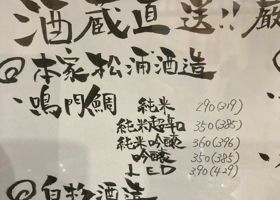 酒蔵直送!! 厳
◎本家松浦酒造
・鳴門鯛 純米 290(319)
純米超辛口 350(385)
純米吟醸 360(396)
吟醸 350(385)
LED 390(429)
酒造